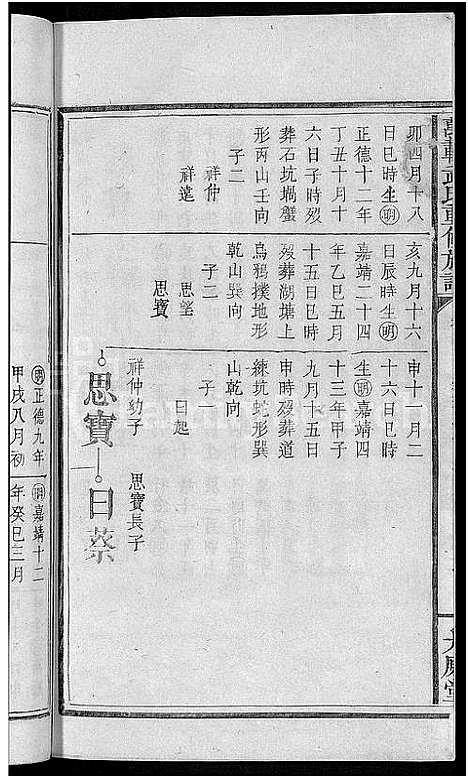 卯四月十八
日巳時生明
正德十二年
丁丑十月十
六日子時歿
葬石坑堝蟹
形丙山壬向
子二
祥仲
祥遠
亥九月十六
日辰時生明
嘉靖二十四
年乙巳五月
十五日巳時
歿葬湖塘上
烏鴉撲地形
乾山巽向
子二
思望
思寶
申十一月二
十六日巳時
生明嘉靖四
十三年甲子
九月十五日
申時歿葬道
練坑蛇形巽
山乾向
子一
曰起
祥仲幼子
思寶
思寶長子
曰蔡
明正德九年
甲戌八月初
明嘉靖十二
年癸巳三月
氏重修族譜
堂